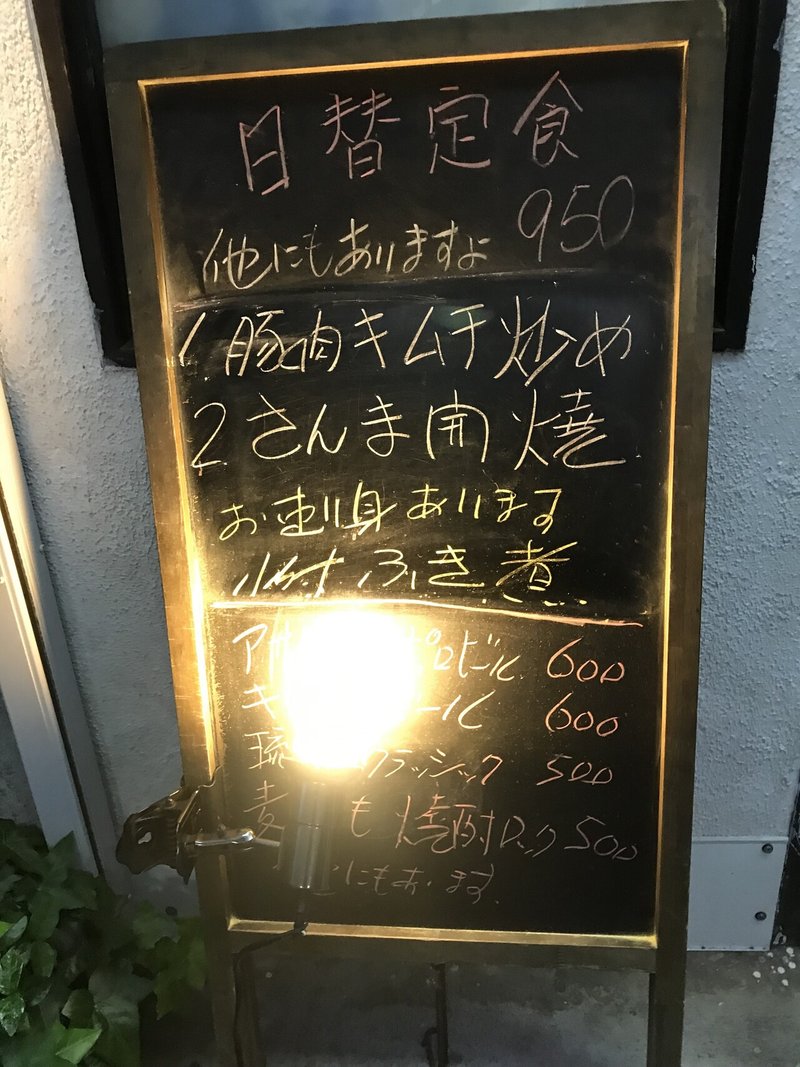 日替定食
950
他にもありますよ
1 豚肉キムチ炒め
2 さんま開焼
お刺身あります
小付 ふき煮
ビール 600
ール 600
琉 クラッシック 500
麦 も 焼酎ロック 500
にもあります